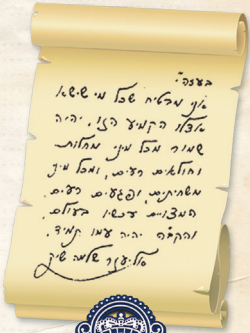 בעזהי"
אני מבטיח שכל מי שישא
אצלו הקמיע הזו, יהיה
שמור מכל מיני מחלות
וחולאים רעים, ומכל מיני
משחיתים, ופגעים רעים,
המצויים עכשיו בעולם,
והקב"ה יהיה עמו תמיד.
אליעזר שלמה שיק